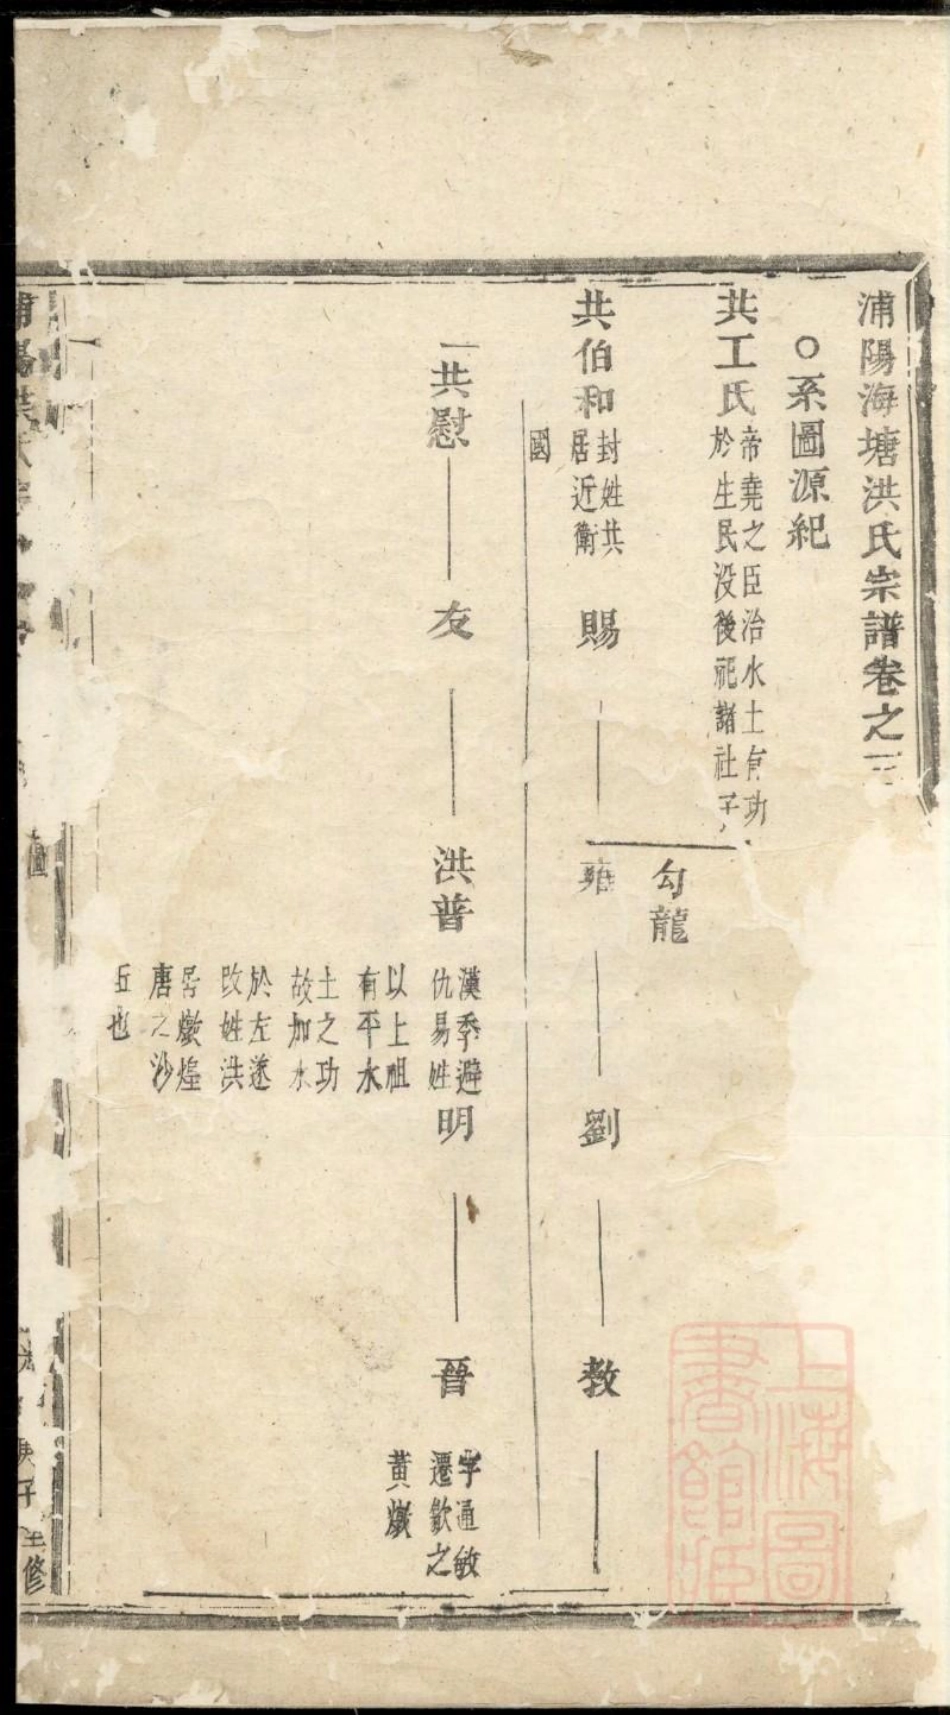 浦陽海塘洪氏宗譜卷之三
○系圖源紀
共工氏
帝堯之臣治水土有功
於生民没後祀諸社子
勾龍
共伯和
封姓共
居近衛
國
賜
雍
劉
教
共慰
友
洪普
漢季避
仇易姓
以上祖
有平水
土之功
故加水
於左遂
改姓洪
居燉煌
唐之沙
丘也
明
晉
字通敏
遷歙之
黃燉
庚子
修
上海圖
書館藏